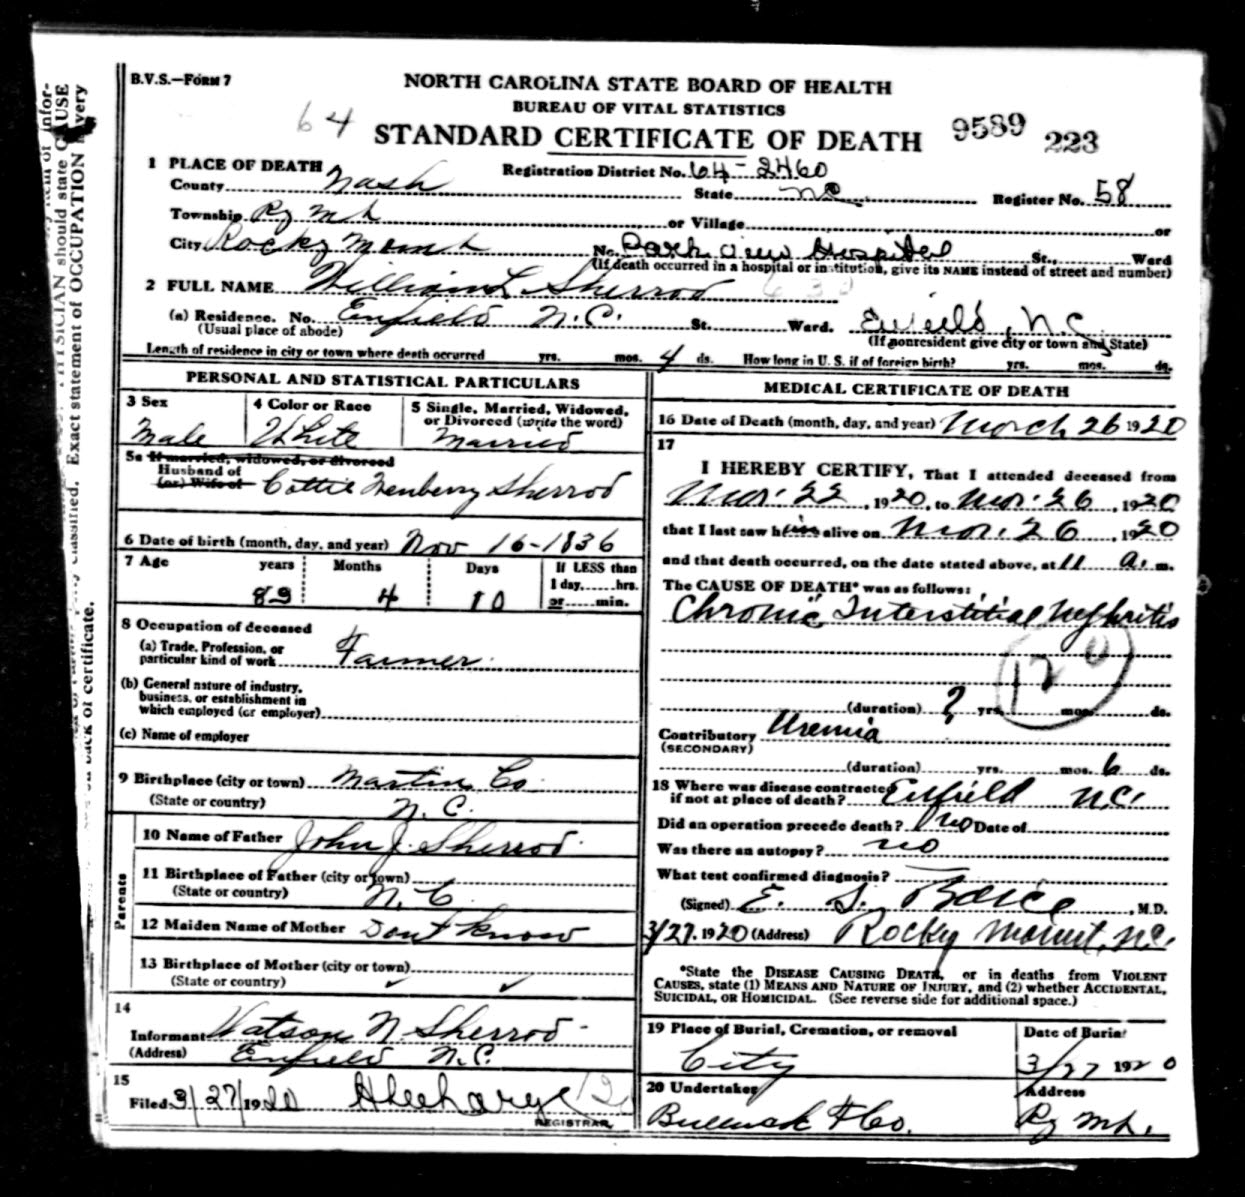 B.V.S.—Form 7
NORTH CAROLINA STATE BOARD OF HEALTH
BUREAU OF VITAL STATISTICS
64
STANDARD CERTIFICATE OF DEATH
9589 223
1 PLACE OF DEATH Registration District No. 64-2460
County Nash State NC Register No. 58
Township Ry Mt or Village or
City Rocky Mount No. Park View Hospital St., Ward
(If death occurred in a hospital or institution, give its NAME instead of street and number)
2 FULL NAME William L. Sherrod
(a) Residence. No. Enfield N.C. St. Ward. Enfield, N.C.
(Usual place of abode) (If nonresident give city or town and State)
Length of residence in city or town where death occurred yrs. mos. 4 ds. How long in U. S. if of foreign birth? yrs. mos. ds.
PERSONAL AND STATISTICAL PARTICULARS
3 Sex
Male
4 Color or Race
White
5 Single, Married, Widowed,
or Divorced (write the word)
Married
5a If married, widowed, or divorced
Husband of
(or) Wife of Sherrod
6 Date of birth (month, day, and year) Nov 16-1836
7 Age years Months Days If LESS than
1 day, hrs.
83 4 10 or min.
8 Occupation of deceased
(a) Trade, Profession, or
particular kind of work Farmer
(b) General nature of industry,
business, or establishment in
which employed (or employer)
(c) Name of employer
9 Birthplace (city or town) Martin Co.
(State or country) N.C.
Parents
10 Name of Father John J. Sherrod
11 Birthplace of Father (city or town)
(State or country) N.C.
12 Maiden Name of Mother Dont Know
13 Birthplace of Mother (city or town)
(State or country)
14
Informant Watson N. Sherrod
(Address) Enfield N.C.
15
Filed 3/27/1920
REGISTRAR
MEDICAL CERTIFICATE OF DEATH
16 Date of Death (month, day, and year) March 26 1920
17
I HEREBY CERTIFY, That I attended deceased from
Mar. 22, 1920, to Mar. 26, 1920
that I last saw him alive on Mar. 26, 1920
and that death occurred, on the date stated above, at 11 a. m.
The CAUSE OF DEATH* was as follows:
Chronic Interstitial Nephritis
120
(duration) ? yrs. mos. ds.
Contributory Uremia
(SECONDARY)
(duration) yrs. mos. 6 ds.
18 Where was disease contracted
if not at place of death? Enfield N.C.
Did an operation precede death? No Date of
Was there an autopsy? no
What test confirmed diagnosis?
(Signed) E. S. Boice, M.D.
3/27, 1920 (Address) Rocky Mount, N.C.
*State the DISEASE CAUSING DEATH, or in deaths from VIOLENT
CAUSES, state (1) MEANS AND NATURE OF INJURY, and (2) whether ACCIDENTAL,
SUICIDAL, OR HOMICIDAL. (See reverse side for additional space.)
19 Place of Burial, Cremation, or removal Date of Burial
City 3/27 1920
20 Undertaker Address
Co. Ry Mt.
PHYSICIAN should state CAUSE
Exact statement of OCCUPATION
classified.
back of certificate.